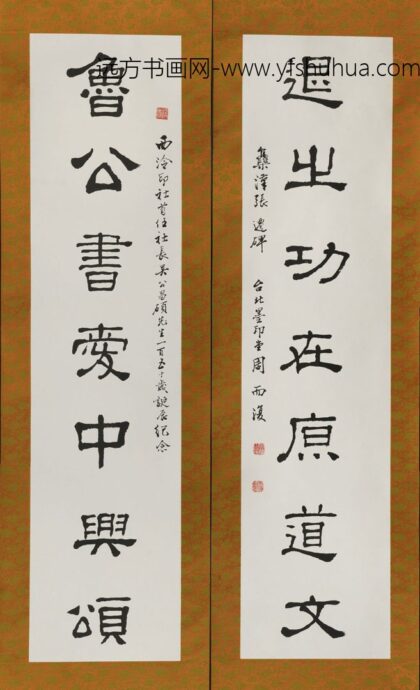 远方书画网-www.yfshuhua.com
退之功在原道文
集漢張遷碑 台北墨印堂周
西泠印社首任社長吳公昌碩先生一百五十歲誕辰紀念
魯公書愛中興頌